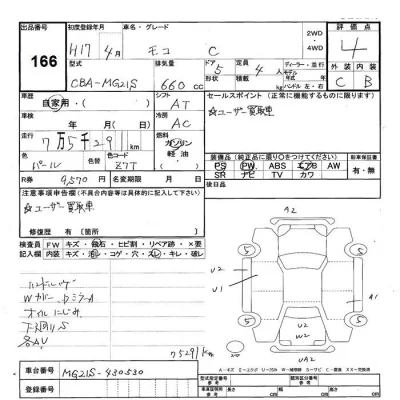 出品番号 初度登録年月 車名・グレード 2WD ・ 4WD 評価点
166 H17年 4月 モコ C 4
型式 排気量 ドア 形状 定員 ディーラー・並行 外装 内装
CBA-MG21S 660cc 5 4人 モデル年 ハンドル 左・右 C B
車歴 自家用・ シフト AT セールスポイント(正常に機能するものに限ります)
☆ユーザー買取車
車検 年 月 冷房 AC
走行 7万5千291km 燃料 ガソリン 軽油
色 パール 色コード Z7T
装備品(純正品に限り○をつけてください) 新車保証書
PS PW ABS エアB AW 有・無
SR ナビ TV カワ
R券 9,570円 名変期限 月 日 後日品
注意事項申告欄(不具合内容等は具体的に記入して下さい)
☆ユーザー買取車
修復歴 有 [箇所 ]
検査員記入欄 FW キズ・飛石・ヒビ割・リペア跡・×要
内装 キズ・汚レ・コゲ・穴・スレ・キレ・破レ
A2
U2
U1
A1
U2
W2
UA2
ハンドルハゲ
Wカバー、カミラーA
オイルにじみ
下回りS
各AU
75291km
車台番号 MG21S-430530
登録番号
A-キズ E-エクボ U-凹み W-補修跡 S-サビ C-腐食 X-交換 XX-交換済